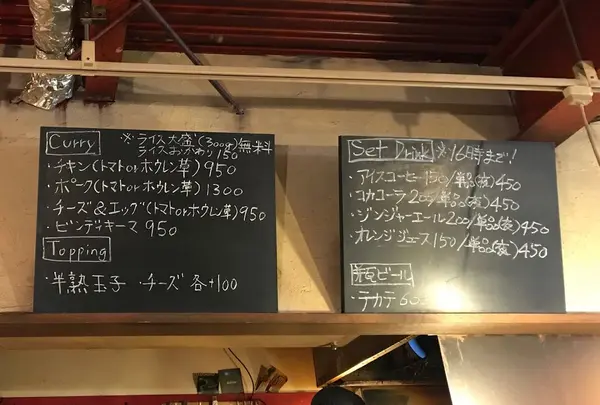 Curry ※ライス大盛(300g)無料
ライスおかわり150
・チキン(トマトorホウレン草)950
・ポーク(トマトorホウレン草)1300
・チーズ&エッグ(トマトorホウレン草)950
・ビンディキーマ 950
Topping
・半熟玉子 ・チーズ 各+100
Set Drink ※16時まで!
・アイスコーヒー150/単品(夜)450
・コカコーラ200/単品(夜)450
・ジンジャーエール200/単品(夜)450
・オレンジジュース150/単品(夜)450
瓶ビール
・テカテ60